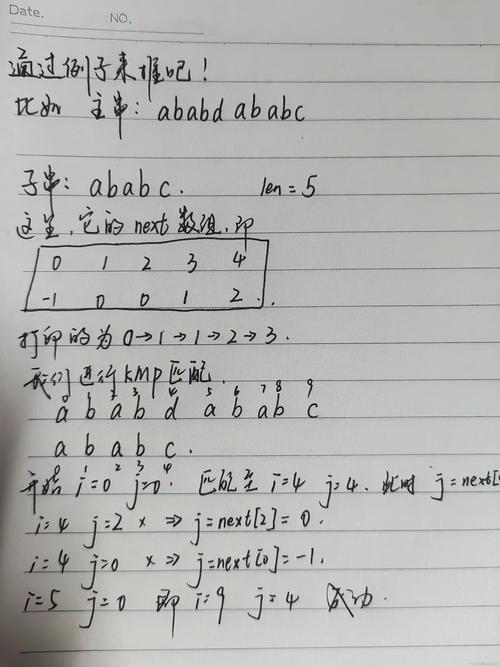 Date. NO.
通过例子来推吧！
比如 主串：ababd ababc
子串：ababc. len=5
这里，它的next数组，即
0 1 2 3 4
-1 0 0 1 2
打印的为0→1→1→2→3.
我们进行KMP匹配.
0 1 2 3 4 5 6 7 8 9
a b a b d a b a b c
a b a b c.
0 1 2 3 4
开始 i=0 j=0. 匹配至 i=4 j=4. 此时 j=next[
i=4 j=2 × ⇒ j=next[2]=0.
i=4 j=0 × ⇒ j=next[0]=-1.
i=5 j=0 即 i=9 j=4 成功.